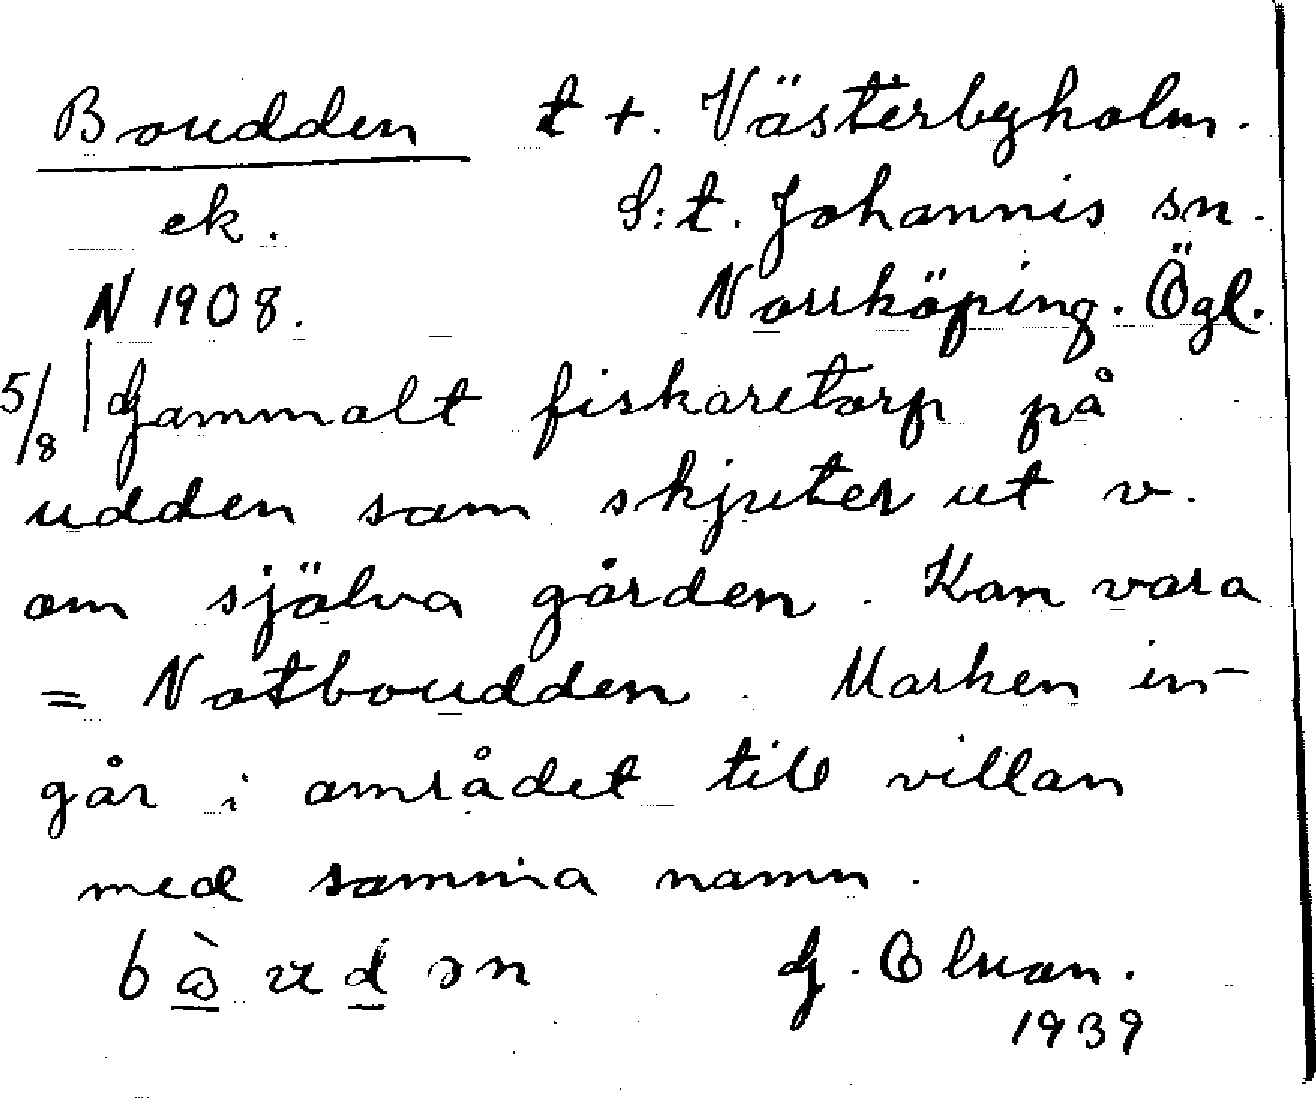 Boudden t +. Västerbyholm.
ek. S:t. Johannis sn.
N 1908. Norrköping. Ögl.
5/8 | Gammalt fiskaretorp på
udden som skjuter ut v.
om själva gården. Kan vara
= Notboudden. Marken in-
går i området till villan
med samma namn.
G.
1939